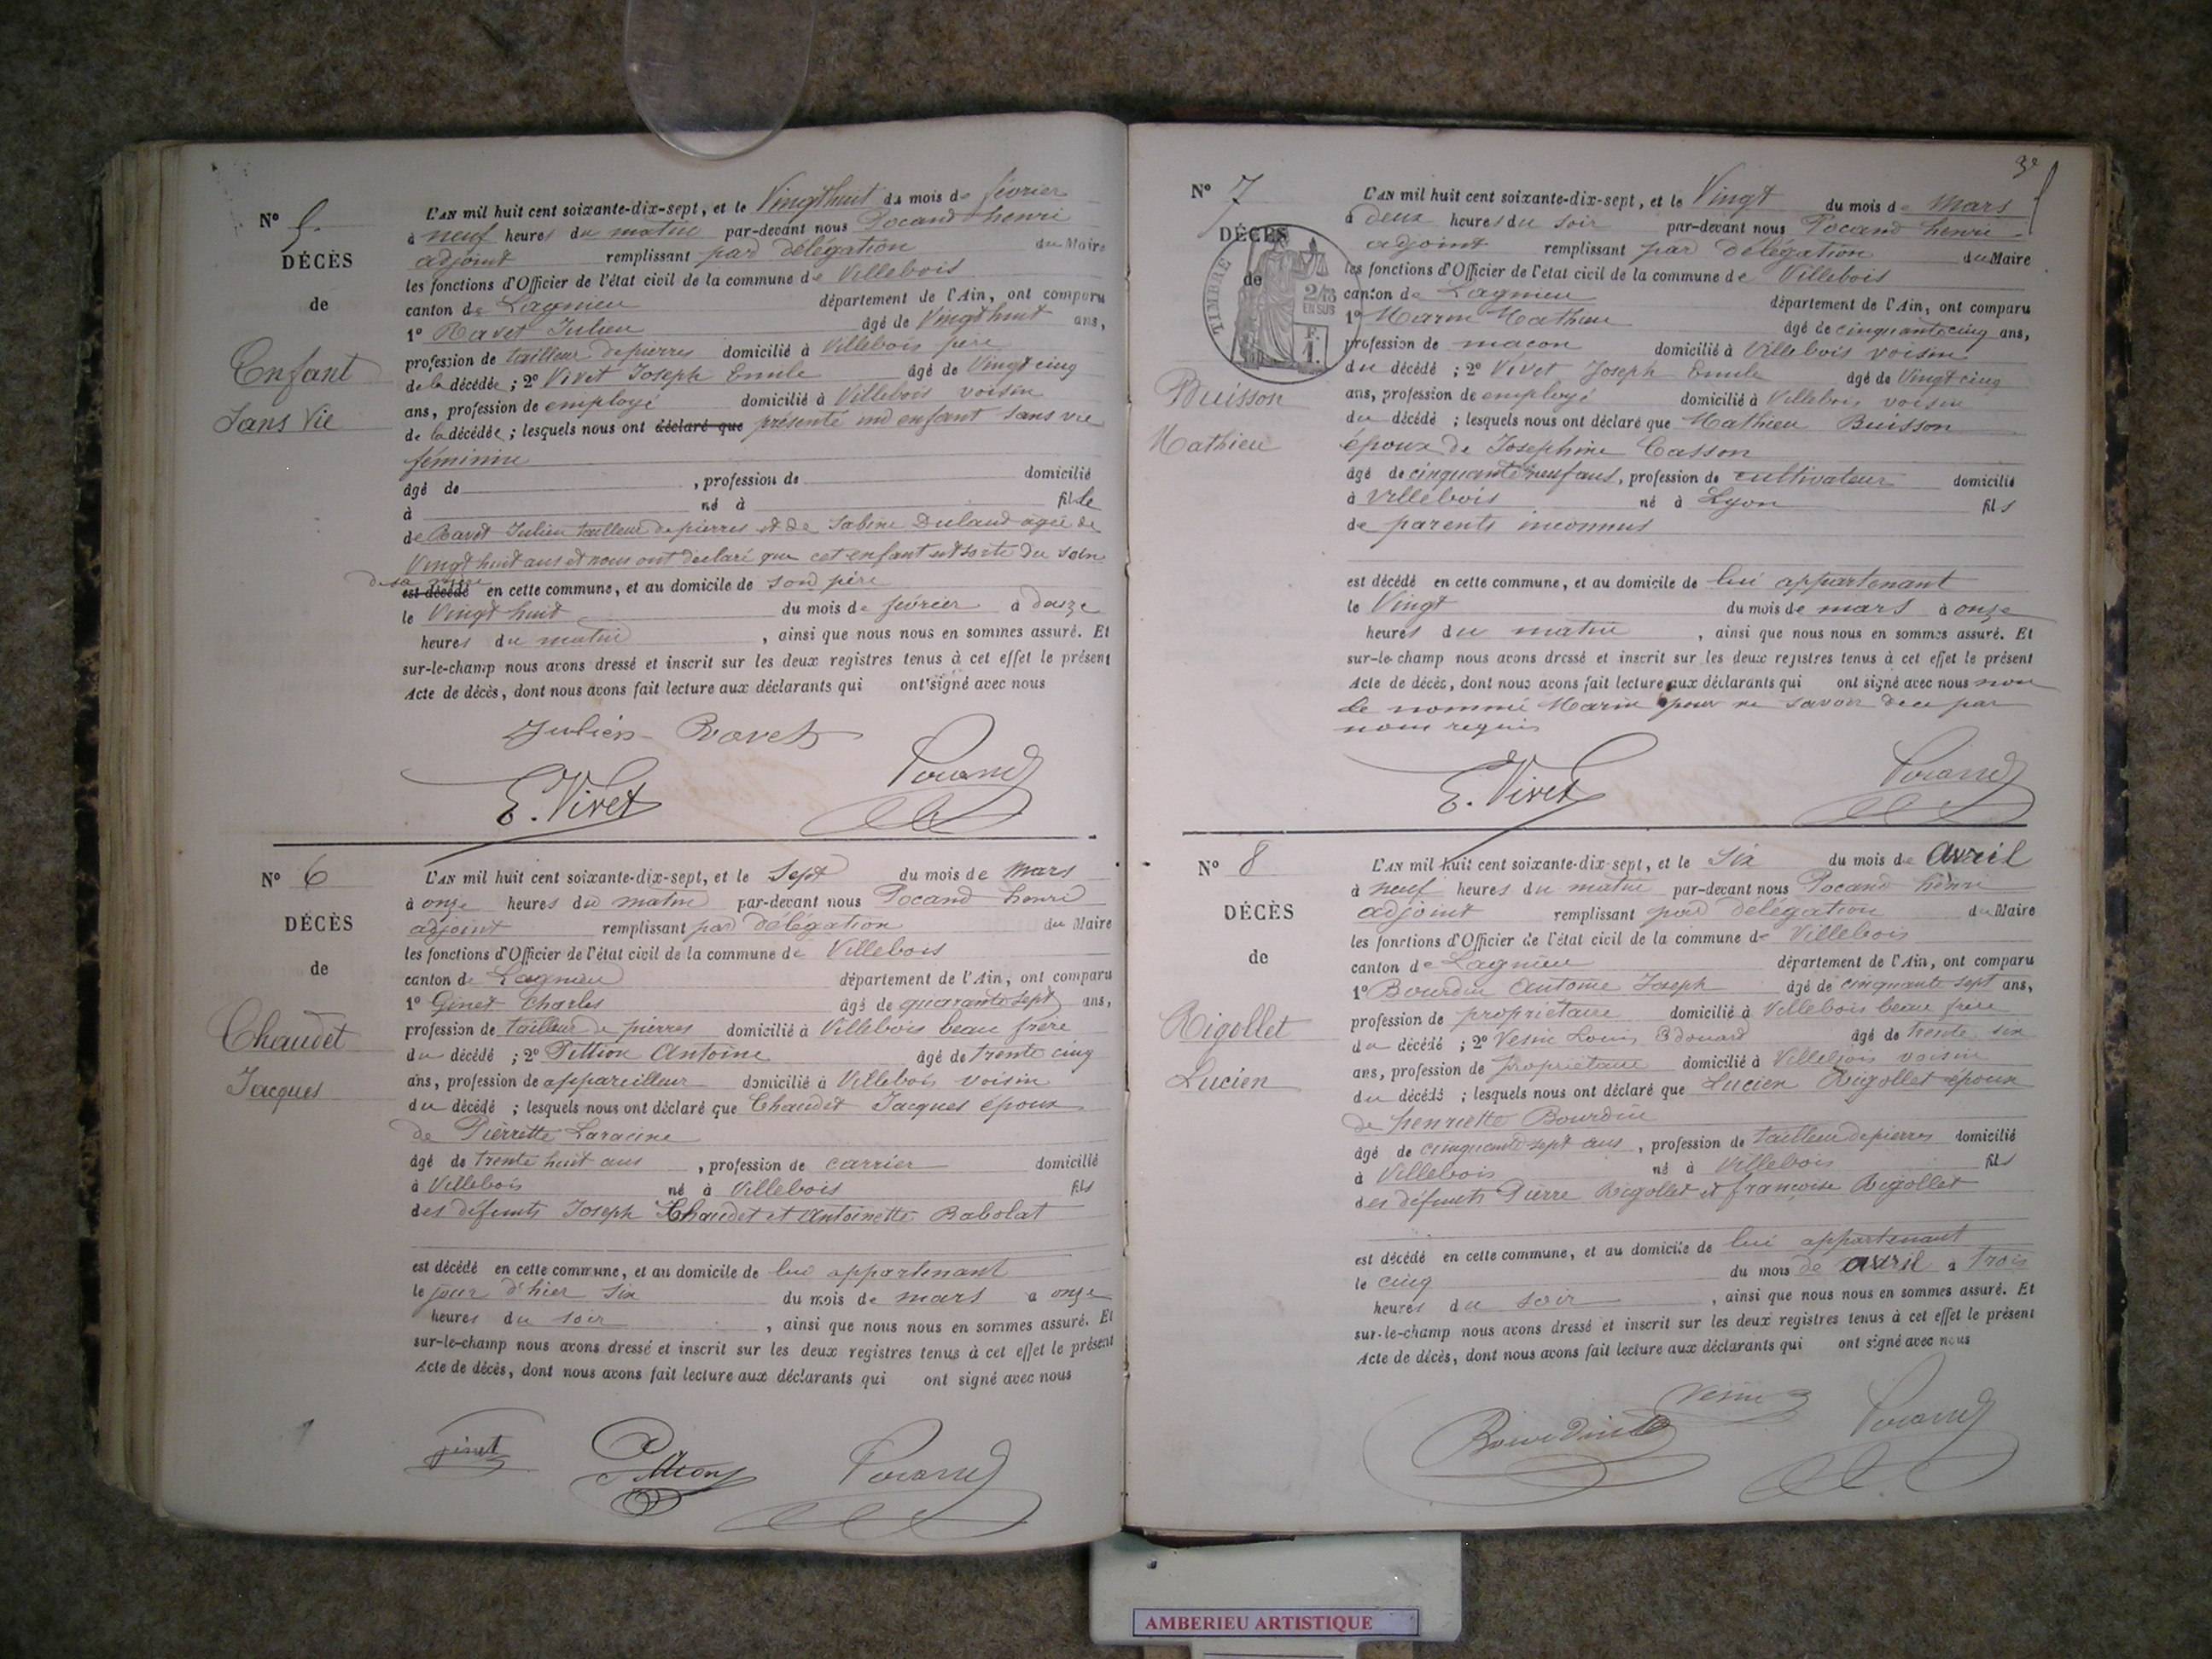 N° 5.
DÉCÈS
de
Enfant
Sans Vie
L'AN mil huit cent soixante-dix-sept, et le Vingthuit du mois de février
à neuf heures du matin par-devant nous Pocand henri
adjoint remplissant par délégation du Maire
les fonctions d'Officier de l'état civil de la commune de Villebois
canton de Lagnieu département de l'Ain, ont comparu
1° Ravet Julien âgé de Vingt huit ans,
profession de tailleur de pierres domicilié à Villebois père
de la décédée ; 2° Vivet Joseph Emile âgé de Vingt cinq
ans, profession de employé domicilié à Villebois voisin
de la décédée ; lesquels nous ont déclaré que présenté un enfant sans vie
féminin
âgé de , profession de domicilié
à né à fille
de Ravet Julien tailleur de pierres et de Sabine Duland agée de
Vingt huit ans et nous ont declaré que cet enfant est sorti du sein
de sa mère est décédé en cette commune, et au domicile de son père
le Vingt huit du mois de février à douze
heures du matin , ainsi que nous nous en sommes assuré. Et
sur-le-champ nous avons dressé et inscrit sur les deux registres tenus à cet effet le présent
Acte de décès, dont nous avons fait lecture aux déclarants qui ont signé avec nous
Julien Ravet
E. Vivet Pocand
N° 6
DÉCÈS
de
Chaudet
Jacques
L'AN mil huit cent soixante-dix-sept, et le Sept du mois de Mars
à onze heures du matin par-devant nous Pocand henri
adjoint remplissant par délégation du Maire
les fonctions d'Officier de l'état civil de la commune de Villebois
canton de Lagnieu département de l'Ain, ont comparu
1° Ginet Charles âgé de quarante sept ans,
profession de tailleur de pierres domicilié à Villebois beau frère
du décédé ; 2° Pittion Antoine âgé de trente cinq
ans, profession de appareilleur domicilié à Villebois voisin
du décédé ; lesquels nous ont déclaré que Chaudet Jacques époux
de Pierrette Laracine
âgé de trente huit ans , profession de carrier domicilié
à Villebois né à Villebois fils
des défunts Joseph Chaudet et Antoinette Babolat
est décédé en cette commune, et au domicile de lui appartenant
le jour d'hier six du mois de mars à onze
heures du soir , ainsi que nous nous en sommes assuré. Et
sur-le-champ nous avons dressé et inscrit sur les deux registres tenus à cet effet le présent
Acte de décès, dont nous avons fait lecture aux déclarants qui ont signé avec nous
ginet Pittion Pocand
3e
N° 7
DÉCÈS
de
TIMBRE
2/10
EN SUS
F.
1.
Buisson
Mathieu
L'AN mil huit cent soixante-dix-sept, et le Vingt du mois de Mars
à deux heures du soir par-devant nous Pocand henri
adjoint remplissant par délégation du Maire
les fonctions d'Officier de l'état civil de la commune de Villebois
canton de Lagnieu département de l'Ain, ont comparu
1° Marin Mathieu âgé de cinquante cinq ans,
profession de maçon domicilié à Villebois voisin
du décédé ; 2° Vivet Joseph Emile âgé de Vingt cinq
ans, profession de employé domicilié à Villebois voisin
du décédé ; lesquels nous ont déclaré que Mathieu Buisson
époux de Josephine Casson
âgé de cinquante neuf ans, profession de cultivateur domicilié
à Villebois né à Lyon fils
de parents inconnus
est décédé en cette commune, et au domicile de lui appartenant
le Vingt du mois de mars à onze
heures du matin , ainsi que nous nous en sommes assuré. Et
sur-le-champ nous avons dressé et inscrit sur les deux registres tenus à cet effet le présent
Acte de décès, dont nous avons fait lecture aux déclarants qui ont signé avec nous non
le nommé Marin pour ne savoir de ce par
nous requis
E. Vivet Pocand
N° 8
DÉCÈS
de
Rigollet
Lucien
L'AN mil huit cent soixante-dix-sept, et le Six du mois de Avril
à neuf heures du matin par-devant nous Pocand henri
adjoint remplissant par délégation du Maire
les fonctions d'Officier de l'état civil de la commune de Villebois
canton de Lagnieu département de l'Ain, ont comparu
1° Bourdin Antoine Joseph âgé de cinquante sept ans,
profession de propriétaire domicilié à Villebois beau frère
du décédé ; 2° Vesin Louis Edouard âgé de trente six
ans, profession de propriétaire domicilié à Villebois voisin
du décédé ; lesquels nous ont déclaré que Lucien Rigollet époux
de henriette Bourdin
âgé de cinquante sept ans , profession de tailleur de pierres domicilié
à Villebois né à Villebois fils
des défunts Pierre Rigollet et françoise Rigollet
est décédé en cette commune, et au domicile de lui appartenant
le cinq du mois de avril à trois
heures du soir , ainsi que nous nous en sommes assuré. Et
sur-le-champ nous avons dressé et inscrit sur les deux registres tenus à cet effet le présent
Acte de décès, dont nous avons fait lecture aux déclarants qui ont signé avec nous
Bourdin Vesin Pocand
AMBERIEU ARTISTIQUE